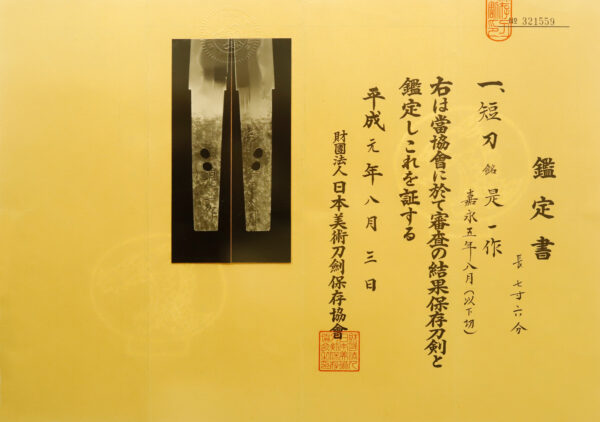 № 321559
鑑定書
一、短刀 銘 是一作
長 七寸六分
嘉永五年八月(以下切)
右は當協會に於て審査の結果保存刀剣と
鑑定しこれを証する
平成元年八月三日
財團法人 日本美術刀劍保存協會